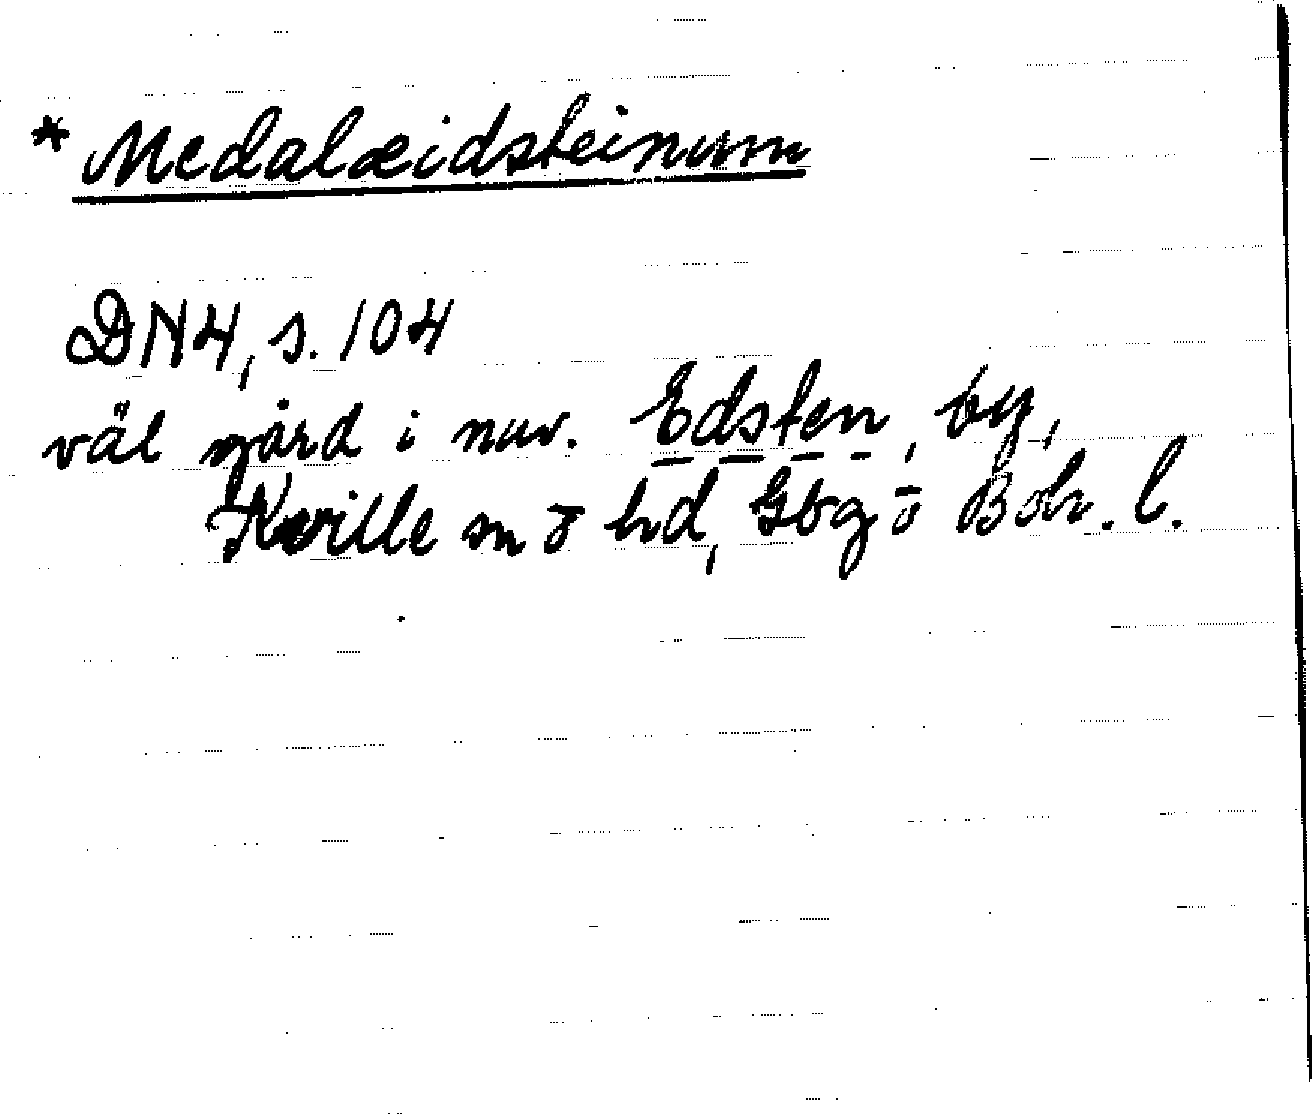 * Medalæidsteinum
DN4, s. 104
väl gård i nuv. Edsten, by,
Kville sn ō hd, Gbg ō Boh. l.